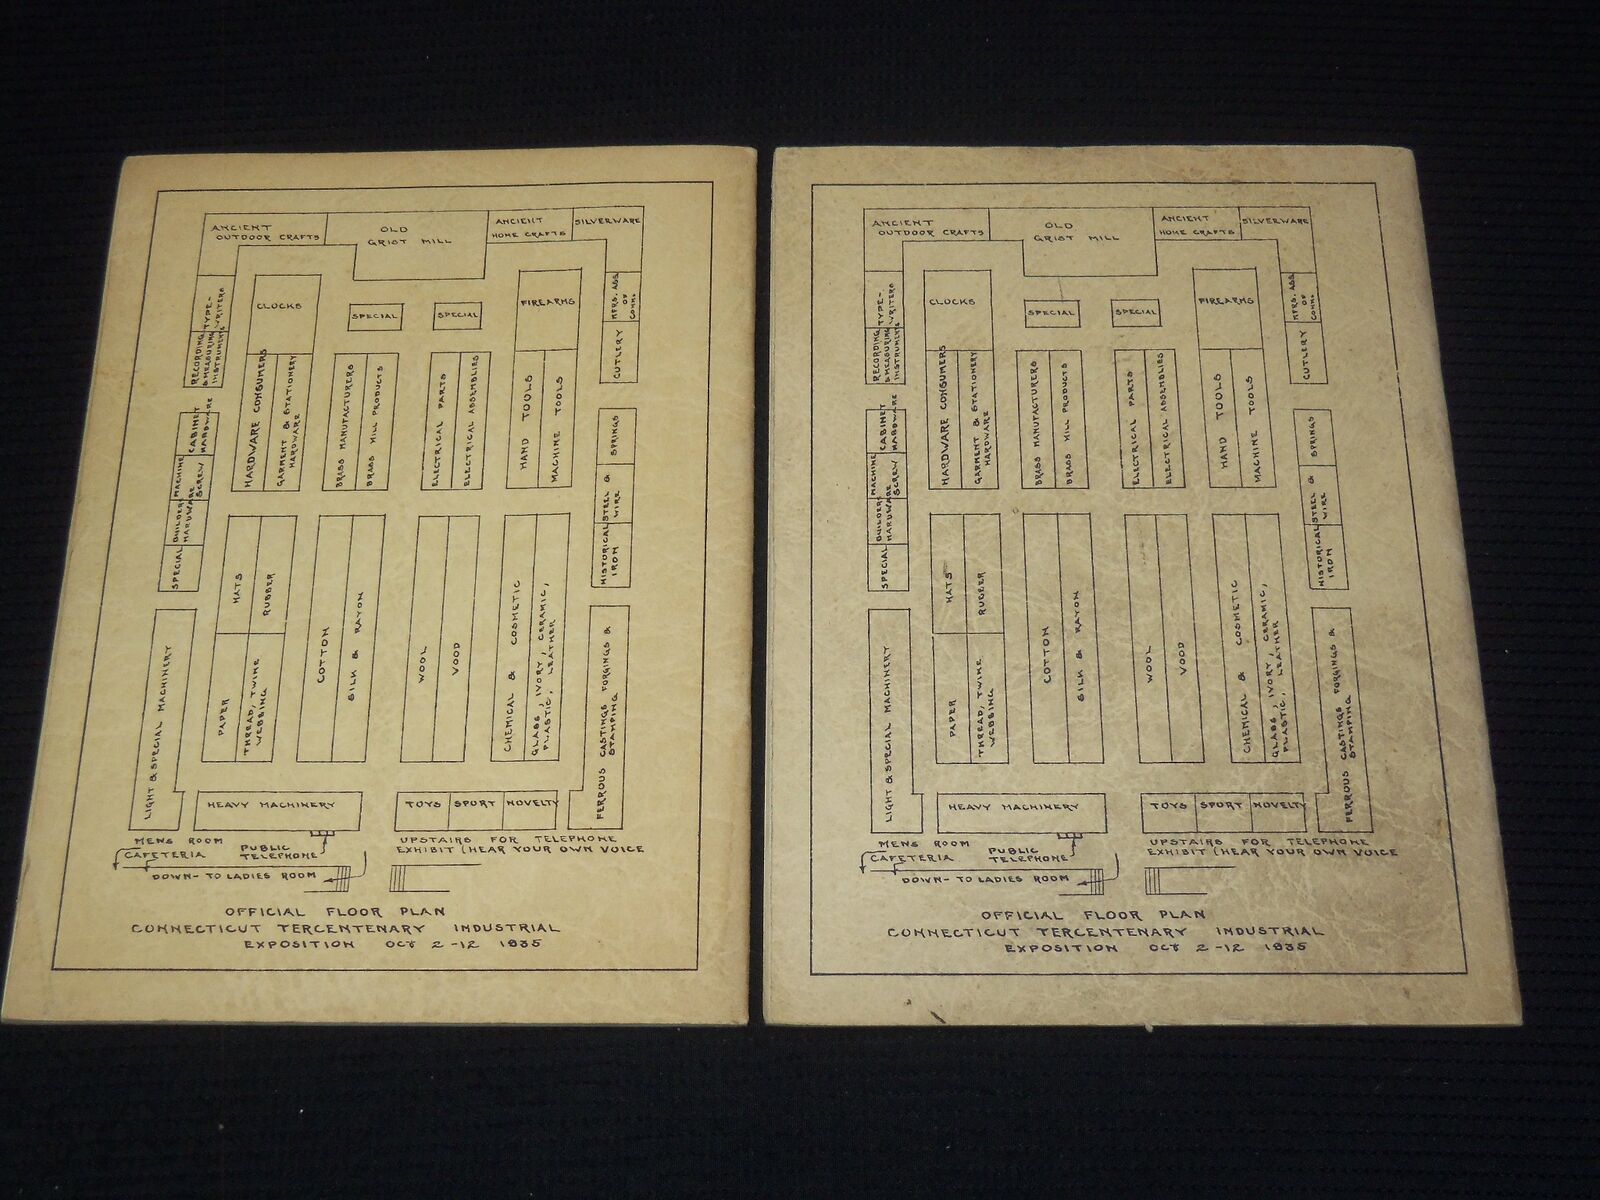 ANCIENT
OUTDOOR CRAFTS
OLD
GRIST MILL
ANCIENT
HOME CRAFTS
SILVERWARE
TYPE-
WRITERS
RECORDING
& MEASURING
INSTRUMENTS
CLOCKS
SPECIAL
SPECIAL
FIREARMS
MFRS. ASS.
OF
CONN.
CUTLERY
HARDWARE CONSUMERS
GARMENT & STATIONERY
HARDWARE
BRASS MANUFACTURERS
BRASS MILL PRODUCTS
ELECTRICAL PARTS
ELECTRICAL ASSEMBLIES
HAND TOOLS
MACHINE TOOLS
CABINET
HARDWARE
MACHINE
SCREW
BUILDERS
HARDWARE
SPECIAL
SPRINGS
STEEL &
WIRE
HISTORICAL
IRON
HATS
RUBBER
PAPER
THREAD, TWINE
WEBBING
COTTON
SILK & RAYON
WOOL
WOOD
CHEMICAL & COSMETIC
GLASS, IVORY, CERAMIC,
PLASTIC, LEATHER
LIGHT & SPECIAL MACHINERY
FERROUS CASTINGS FORGINGS &
STAMPING
HEAVY MACHINERY
TOYS
SPORT
NOVELTY
MENS ROOM
CAFETERIA
PUBLIC
TELEPHONE
DOWN- TO LADIES ROOM
UPSTAIRS FOR TELEPHONE
EXHIBIT (HEAR YOUR OWN VOICE
OFFICIAL FLOOR PLAN
CONNECTICUT TERCENTENARY INDUSTRIAL
EXPOSITION OCT 2-12 1935
ANCIENT
OUTDOOR CRAFTS
OLD
GRIST MILL
ANCIENT
HOME CRAFTS
SILVERWARE
TYPE-
WRITERS
RECORDING
& MEASURING
INSTRUMENTS
CLOCKS
SPECIAL
SPECIAL
FIREARMS
MFRS. ASS.
OF
CONN.
CUTLERY
HARDWARE CONSUMERS
GARMENT & STATIONERY
HARDWARE
BRASS MANUFACTURERS
BRASS MILL PRODUCTS
ELECTRICAL PARTS
ELECTRICAL ASSEMBLIES
HAND TOOLS
MACHINE TOOLS
CABINET
HARDWARE
MACHINE
SCREW
BUILDERS
HARDWARE
SPECIAL
SPRINGS
STEEL &
WIRE
HISTORICAL
IRON
HATS
RUBBER
PAPER
THREAD, TWINE
WEBBING
COTTON
SILK & RAYON
WOOL
WOOD
CHEMICAL & COSMETIC
GLASS, IVORY, CERAMIC,
PLASTIC, LEATHER
LIGHT & SPECIAL MACHINERY
FERROUS CASTINGS FORGINGS &
STAMPING
HEAVY MACHINERY
TOYS
SPORT
NOVELTY
MENS ROOM
CAFETERIA
PUBLIC
TELEPHONE
DOWN- TO LADIES ROOM
UPSTAIRS FOR TELEPHONE
EXHIBIT (HEAR YOUR OWN VOICE
OFFICIAL FLOOR PLAN
CONNECTICUT TERCENTENARY INDUSTRIAL
EXPOSITION OCT 2-12 1935